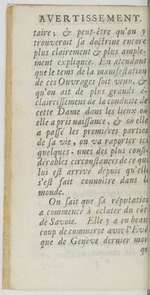 AVERTISSEMENT.
taire, & peut-être qu'on y
trouverait sa doctrine encore
plus clairement & plus ample-
ment expliquée. En attendant
que le tems de la manifestation
de ces Ouvrages soit venu, &
qu'on ait de plus grands é-
claircissemens de la conduite de
cette Dame dans les lieux où
elle a pris naissance, & où elle
a passé les premières parties
de sa vie, on va raporter ici
quelques-unes des plus consi-
dérables circonstances de ce qui
lui est arrivé depuis qu'elle
s'est fait connoitre dans le
monde.
On sait que sa réputation
a commencé à éclater du côté
de Savoie. Elle y a eu beau-
coup de commerce avec l'Evê-
que de Genève dernier mort